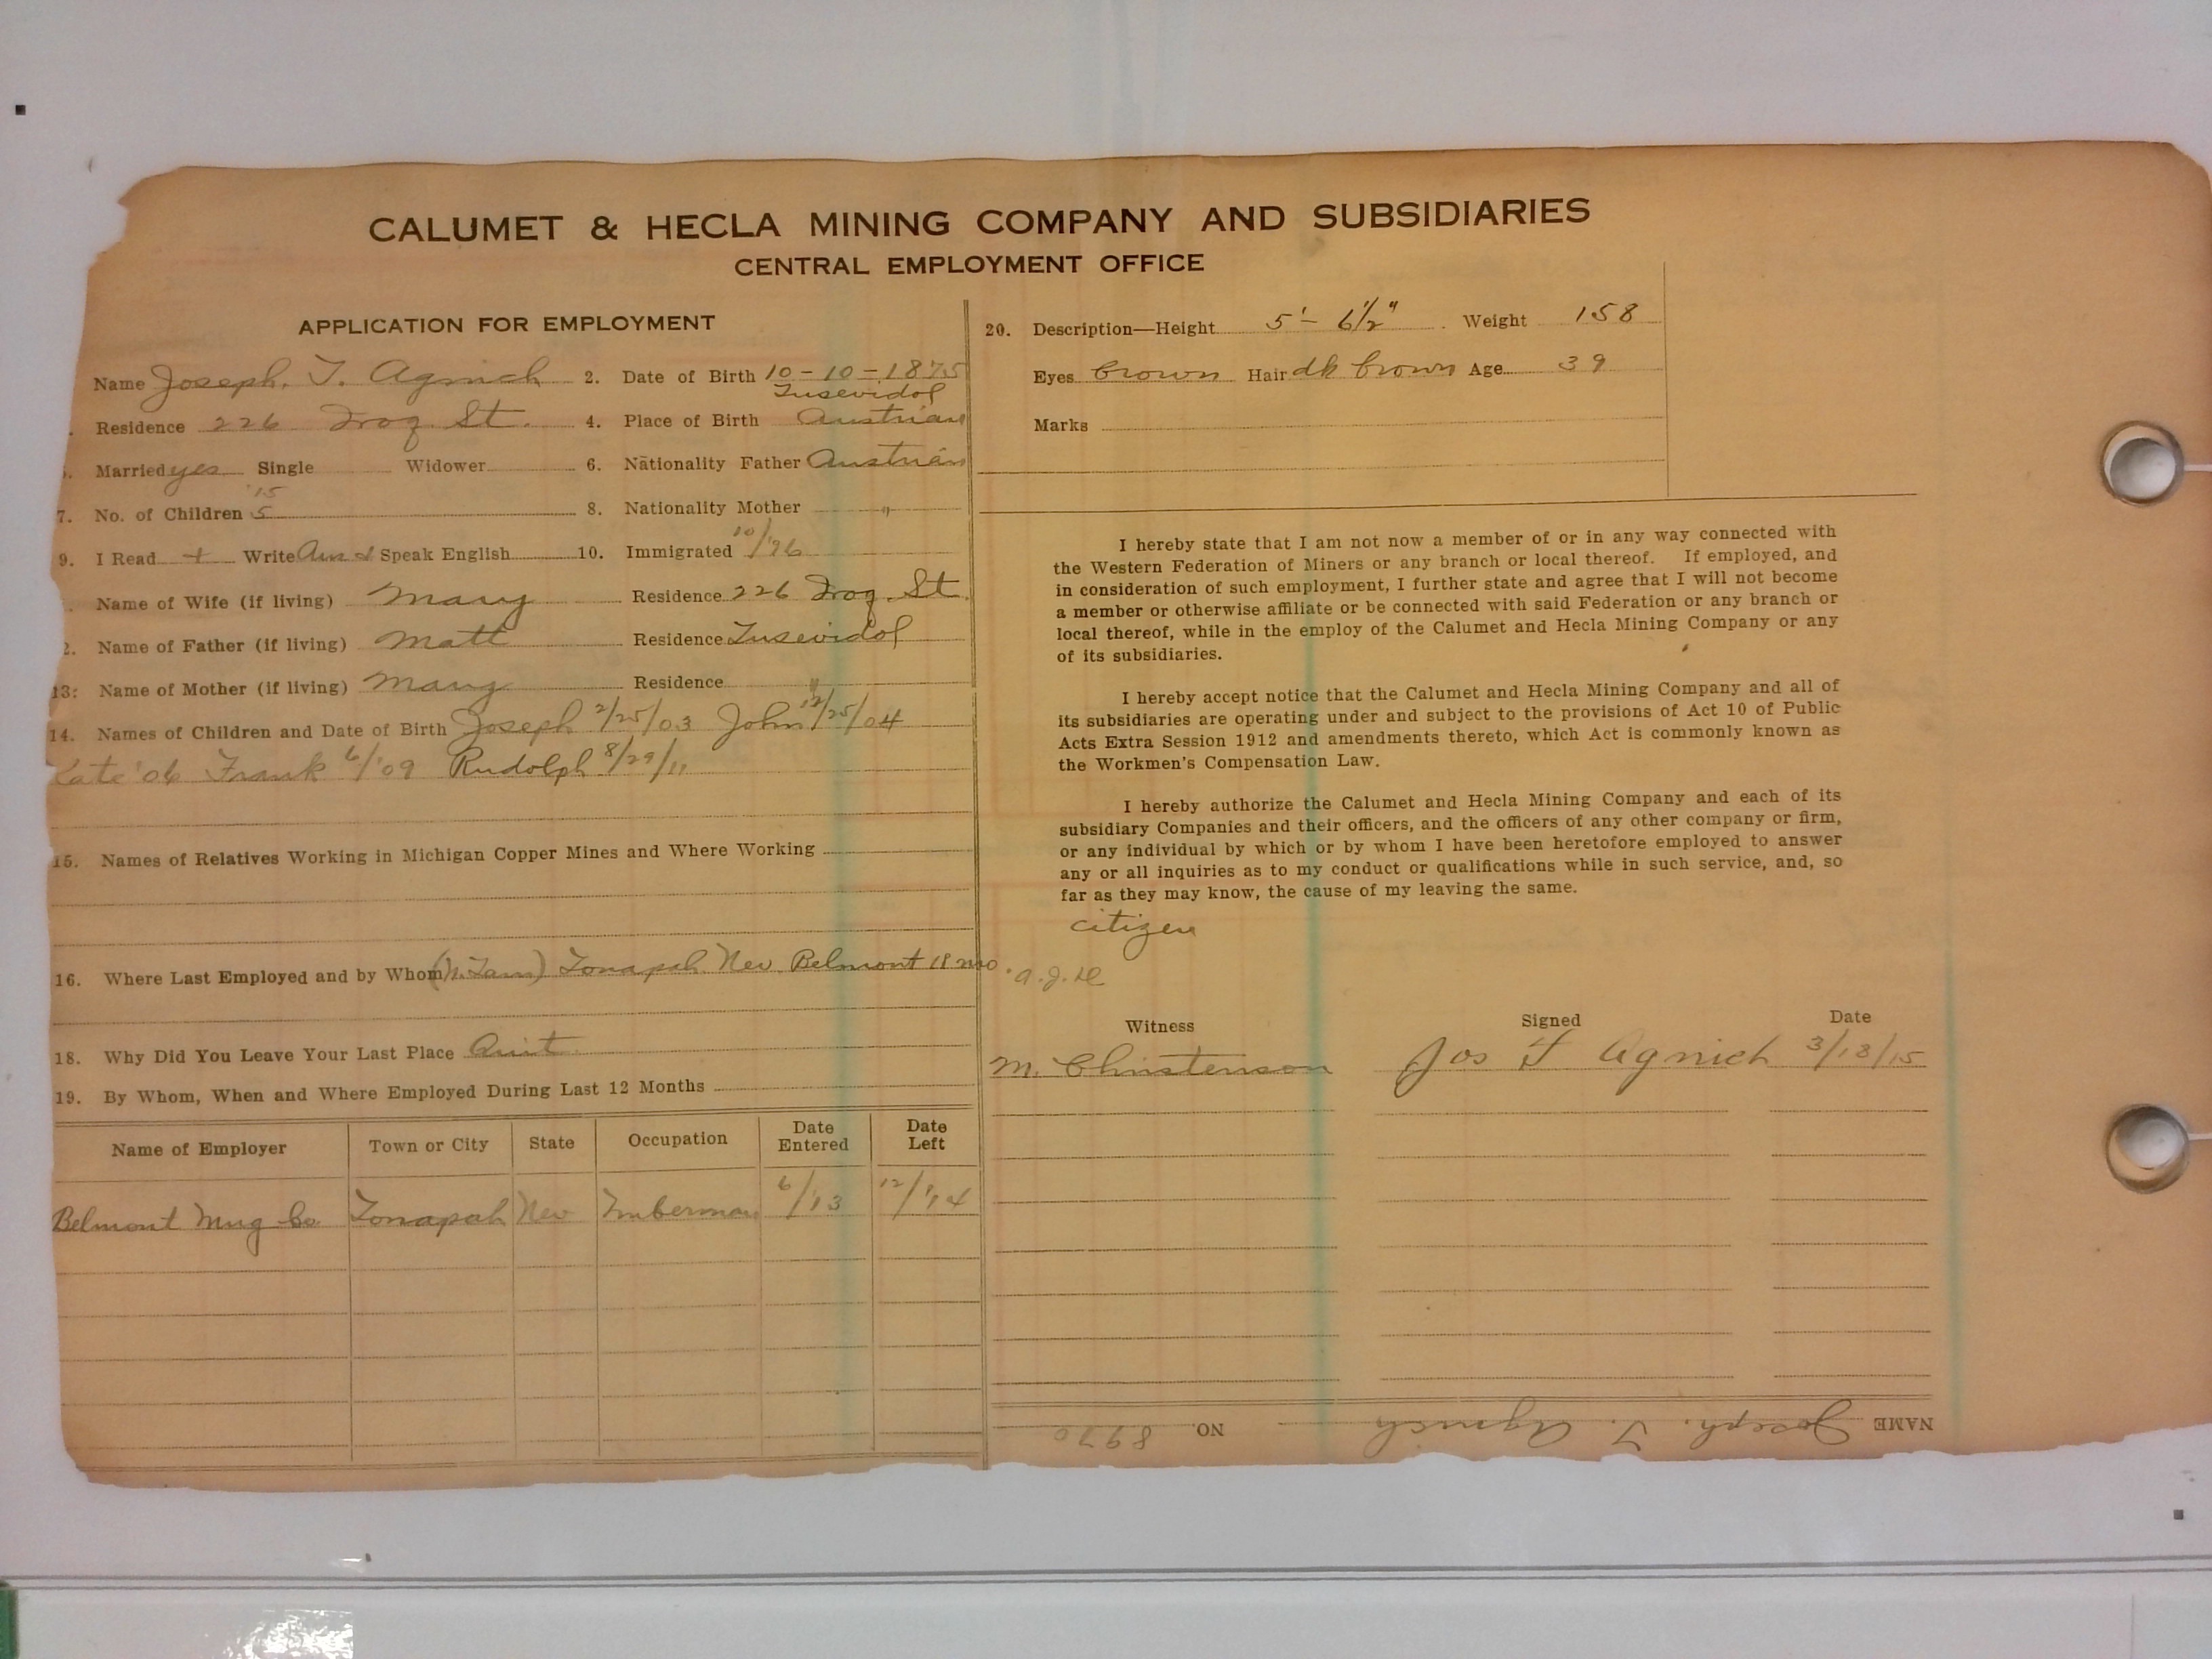 CALUMET & HECLA MINING COMPANY AND SUBSIDIARIES
CENTRAL EMPLOYMENT OFFICE
APPLICATION FOR EMPLOYMENT
Name Joseph. T. Agnich 2. Date of Birth 10-10-1875
Residence 226 St. 4. Place of Birth Austrian
Married yes Single Widower 6. Nationality Father Austrian
'15
7. No. of Children 5 8. Nationality Mother "
9. I Read + Write Speak English 10. Immigrated 10/'96
Name of Wife (if living) Mary Residence 226 St.
Name of Father (if living) Matt Residence
13: Name of Mother (if living) Mary Residence "
14. Names of Children and Date of Birth Joseph 2/25/03 John 12/25/04
Kate '06 Frank 6/'09 Rudolph 8/29/11
15. Names of Relatives Working in Michigan Copper Mines and Where Working
16. Where Last Employed and by Whom Tonapah Nev Belmont 18 mo.
18. Why Did You Leave Your Last Place Quit
19. By Whom, When and Where Employed During Last 12 Months
Name of Employer Town or City State Occupation Date Entered Date Left
Belmont Mng Co. Tonapah Nev Timberman 6/'13 12/'14
20. Description—Height 5'- 6 1/2" Weight 158
Eyes brown Hair dk brown Age 39
Marks
I hereby state that I am not now a member of or in any way connected with
the Western Federation of Miners or any branch or local thereof. If employed, and
in consideration of such employment, I further state and agree that I will not become
a member or otherwise affiliate or be connected with said Federation or any branch or
local thereof, while in the employ of the Calumet and Hecla Mining Company or any
of its subsidiaries.
I hereby accept notice that the Calumet and Hecla Mining Company and all of
its subsidiaries are operating under and subject to the provisions of Act 10 of Public
Acts Extra Session 1912 and amendments thereto, which Act is commonly known as
the Workmen's Compensation Law.
I hereby authorize the Calumet and Hecla Mining Company and each of its
subsidiary Companies and their officers, and the officers of any other company or firm,
or any individual by which or by whom I have been heretofore employed to answer
any or all inquiries as to my conduct or qualifications while in such service, and, so
far as they may know, the cause of my leaving the same.
citizen
Witness Signed Date
M. Christenson Jos T Agnich 3/13/15
NAME Joseph. T. Agnich NO. 8970